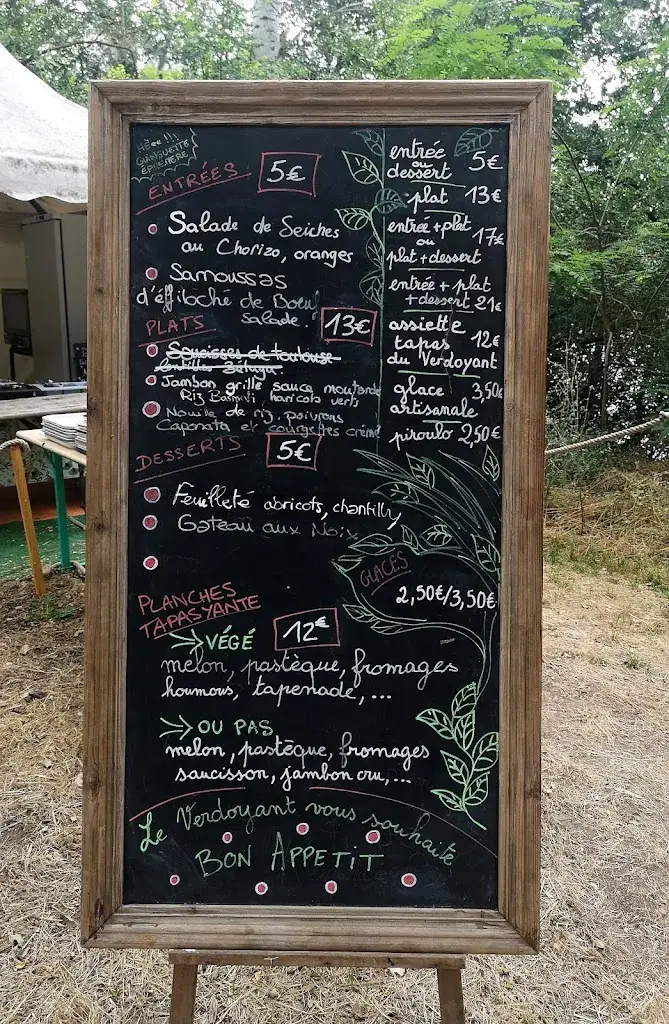 Hééé !!!
GUINGUETTE
ÉPHÉMÈRE
ENTRÉES 5€
Salade de Seiches
au Chorizo, oranges
Samoussas
d'éffiloché de Bœuf
salade.
PLATS 13€
Saucisses de toulouse
lentilles Béluga
Jambon grillé sauce moutarde
Riz Basmati haricots verts
Nouille de riz, poivrons
Caponata et courgettes crème
DESSERTS 5€
Feuilleté abricots, chantilly
Gateau aux Noix
PLANCHES
TAPASYANTE
12€
VÉGÉ
melon, pastèque, fromages
houmous, tapenade, ...
OU PAS
melon, pastèque, fromages
saucisson, jambon cru, ...
entrée
ou
dessert 5€
plat 13€
entrée + plat
ou 17€
plat + dessert
entrée + plat
+ dessert 21€
assiette
tapas 12€
du Verdoyant
glace 3,50€
artisanale
piroulo 2,50€
GLACES
2,50€/3,50€
Le Verdoyant vous souhaite
BON APPETIT